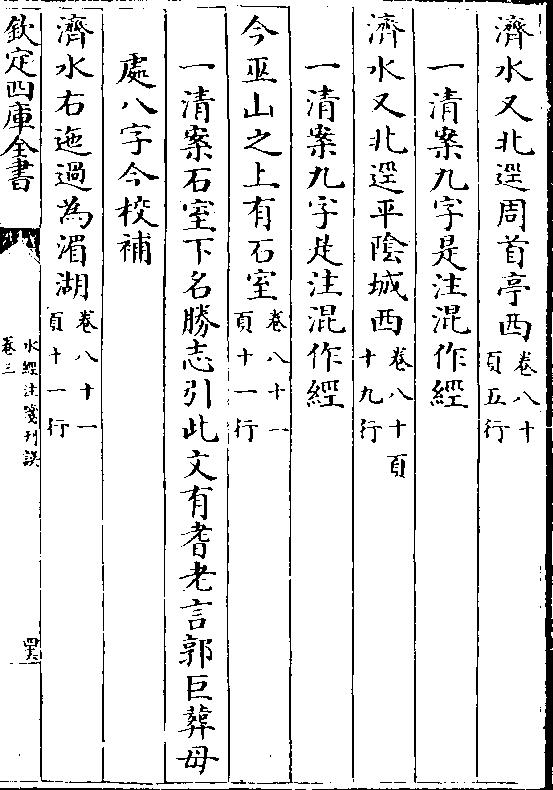 濟水又北逕周首亭西卷八十頁五行
一清案九字是注混作經
濟水又北逕平陰城西卷八十頁十九行
一清案九字是注混作經
今巫山之上有石室卷八十一頁十一行
一清案石室下名勝志引此文有耆老言郭巨葬母
處八字今校補
濟水右迤遏為湄湖卷八十一頁十一行
欽定四庫全書
水經注箋刊誤
卷三